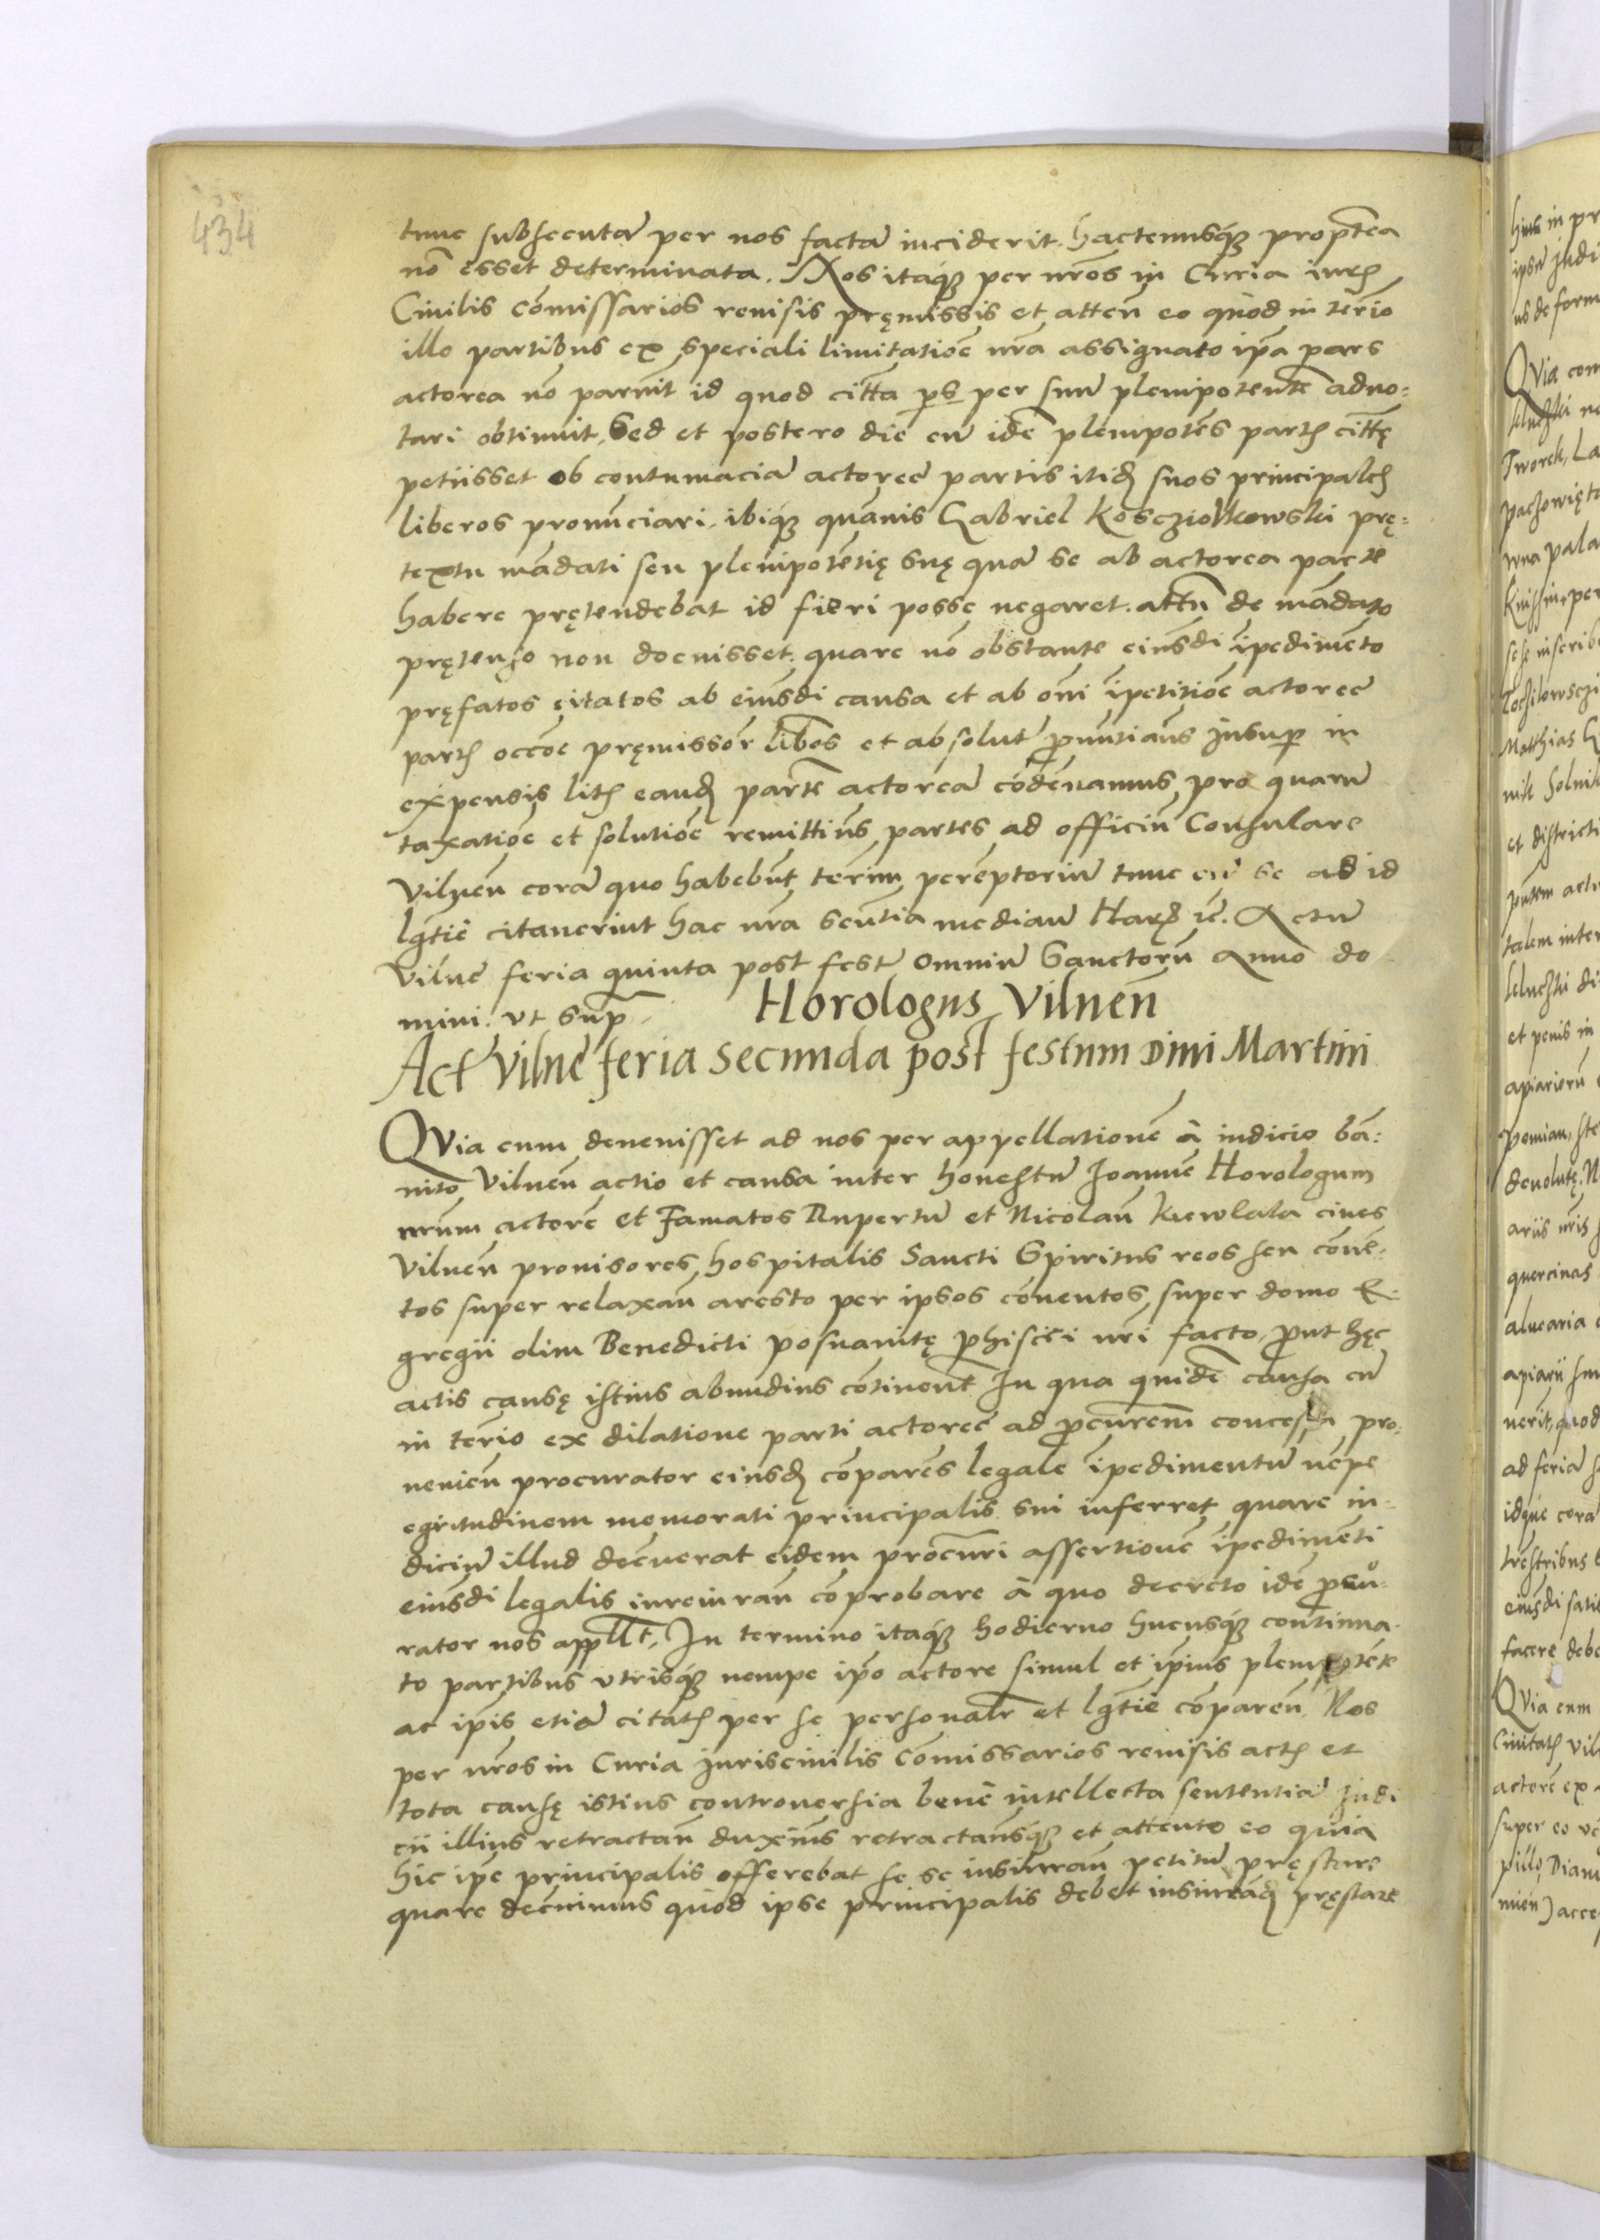 434
tunc subsecutā per nos factā inciderit. hactenusq́ꝫ proptea
nō esset determinata. Nos itáqꝫ per nr̄os in Curia iurꝭ
Ciuilis cōmissarios reuisis pręmissis et atten̄ eo quòd in ter̄io
illo partibus ex speciali limitatiōe nr̄a assignato ip̄a pars
actorea nō paruit id quod citt̄a ps̄ per suū plenipotentē adno:
tari obtinuit, Sed et postero die cū idē plenipotēs partꝭ citt̄ę
petiisset ob contumaciā actoreę partis itidꝫ suos principalꝭ
liberos pronūciari, ibiq́ꝫ quāuis Gabriel Koscziolkowski prę:
textu mādati seu plenipotētię suę quā se ab actorea parte
habere prętendebat id fieri posse negaret. attn̄ de mādato
prętenso non docuisset. quare nō obstante eiusdi īpedimēto
pręfatos citatos ab eiusdi causa et ab om̄i īpetitiōe actoreę
partꝭ occōe pręmissor̄ lib̄os et absolut̄ p̄nūtiāus Insup̄ in
expensis litꝭ eandꝫ partē actoreā cōdēnamus, pro quarū
taxatiōe et solutiōe remittim̄s partes ad officiū Consulare
Vilnen̄ corā quo habebūt ter̄inū perēptoriū tunc cū se ad id
lgt̄ie citauerint hac nr̄a sen̄tia mediān̄ Harꝫ ic̄. Actū
Vilnę feria quinta post festū Omniū Sanctorū Anno do
mini. vt sup̄
Horologus Vilnen̄
Act̄ Vilnę feria secunda post festum Diui Martini
QVia cum deuenisset ad nos per appellationē à iudicio bā:
nito Vilnen̄ actio et causa inter honestū Joannē Horologum
nr̄um actorē et Famatos Rupertū et Nicolaū Kiewlala ciues
Vilnen̄ prouisores hospitalis Sancti Spiritus reos seu cōuē:
tos super relaxan̄ aresto per ipsos cōuentos super domo E:
gregii olim Benedicti posnanitę phisici nr̄i facto, p̄ut hęc
actis causę istius abundius cōtinent̄ In qua quidē causa cū
in ter̄io ex dilatione parti actoreę ad p̄curem̄ concesso pro:
uenien̄ procurator eiusdꝫ cōparēs legale īpedimentū nēpe
egritudinem memorati principalis sui inferret, quare iu:
diciū illud decreuerat eidem procūri assertionē īpedimēti
eiusdi legalis iureiuran̄ cōprobare à quo decreto idē p̄cu:
rator nos appllt̄, In termino itaq́ꝫ hodierno hucusq́ꝫ continua:
to partibus vtrisq́ꝫ nempe ip̄o actore simul et ip̄ius plenipotēte
ac ip̄is etiā citatꝭ per se personalr̄ et lgt̄ie cōparen̄ Nos
per nr̄os in Curia iurisciuilis cōmissarios reuisis actꝭ et
tota causę istius controuersia benè intellecta sententiā Judi
cii illius retractan̄ duxim̄s retractāusq́ꝫ et attento eo quia
hic ip̄e principalis offerebat se se iusiuran̄ petitū pręstare
quare decreuimus quòd ipse principalis debet iusiurādꝫ pręstare